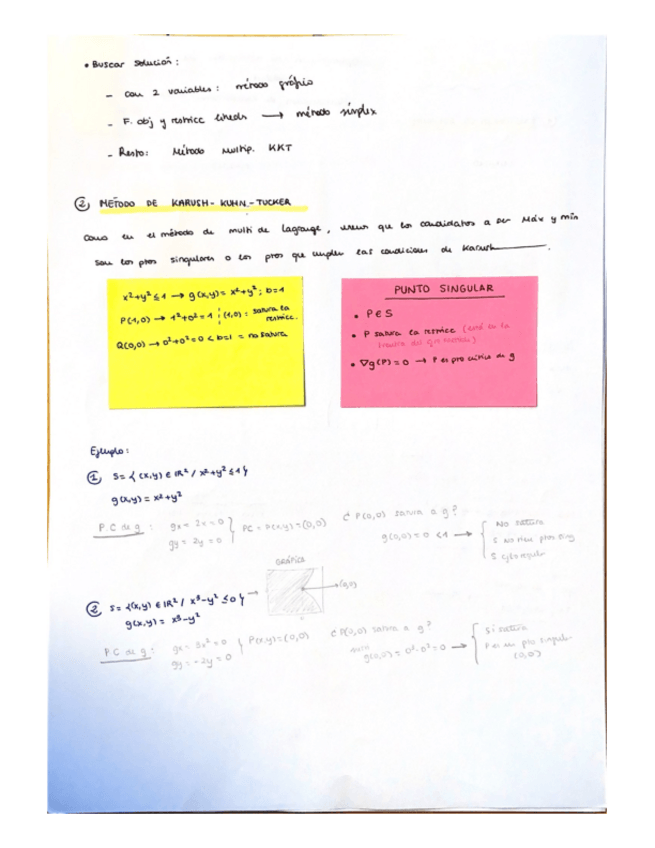 • Buscar solución:
- con 2 variables: método gráfico
- F. obj y restricc lineals → método simplex
- Resto: Método Multip. KKT
② MÉTODO DE KARUSH-KUHN-TUCKER
Como en el método de multi de Lagrange, que los candidatos a ser Máx y mín
son los ptos singulares o los ptos que cumplen las condiciones de Karush
x²+y² ≤ 1 → g(x,y) = x²+y²; b=1
P(1,0) → 1²+0² = 1 ; (1,0): satura la
restricc.
Q(0,0) → 0²+0² = 0 < b=1 = no satura
PUNTO SINGULAR
• P ∈ S
• P satura la restricc (está en la
frontera del)
• ∇g(P) = 0 → P es pto crítico de g
Ejemplo:
① S = {(x,y) ∈ IR² / x²+y² ≤ 1}
g(x,y) = x²+y²
P.C de g: gx = 2x = 0
gy = 2y = 0
PC = P(x,y) = (0,0)
¿P(0,0) satura a g?
g(0,0) = 0 < 1 →
No satura
S no tiene ptos sing
S es regular
GRÁFICA
(0,0)
② S = {(x,y) ∈ IR² / x³-y² ≤ 0} →
g(x,y) = x³-y²
P.C de g: gx = 3x² = 0
gy = -2y = 0
P(x,y) = (0,0)
¿P(0,0) satura a g?
g(0,0) = 0³-0² = 0 →
Sí satura
P es un pto singular
(0,0)